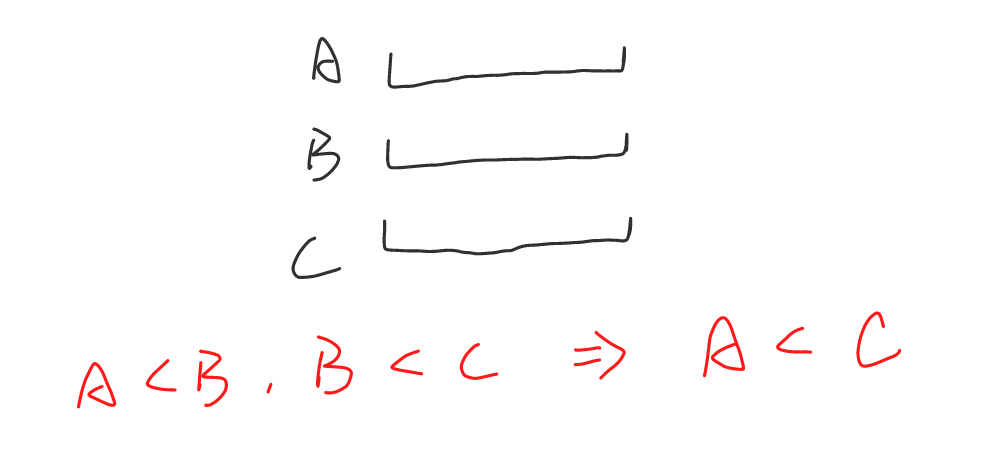 A
B
C
A < B . B < C ⇒ A < C